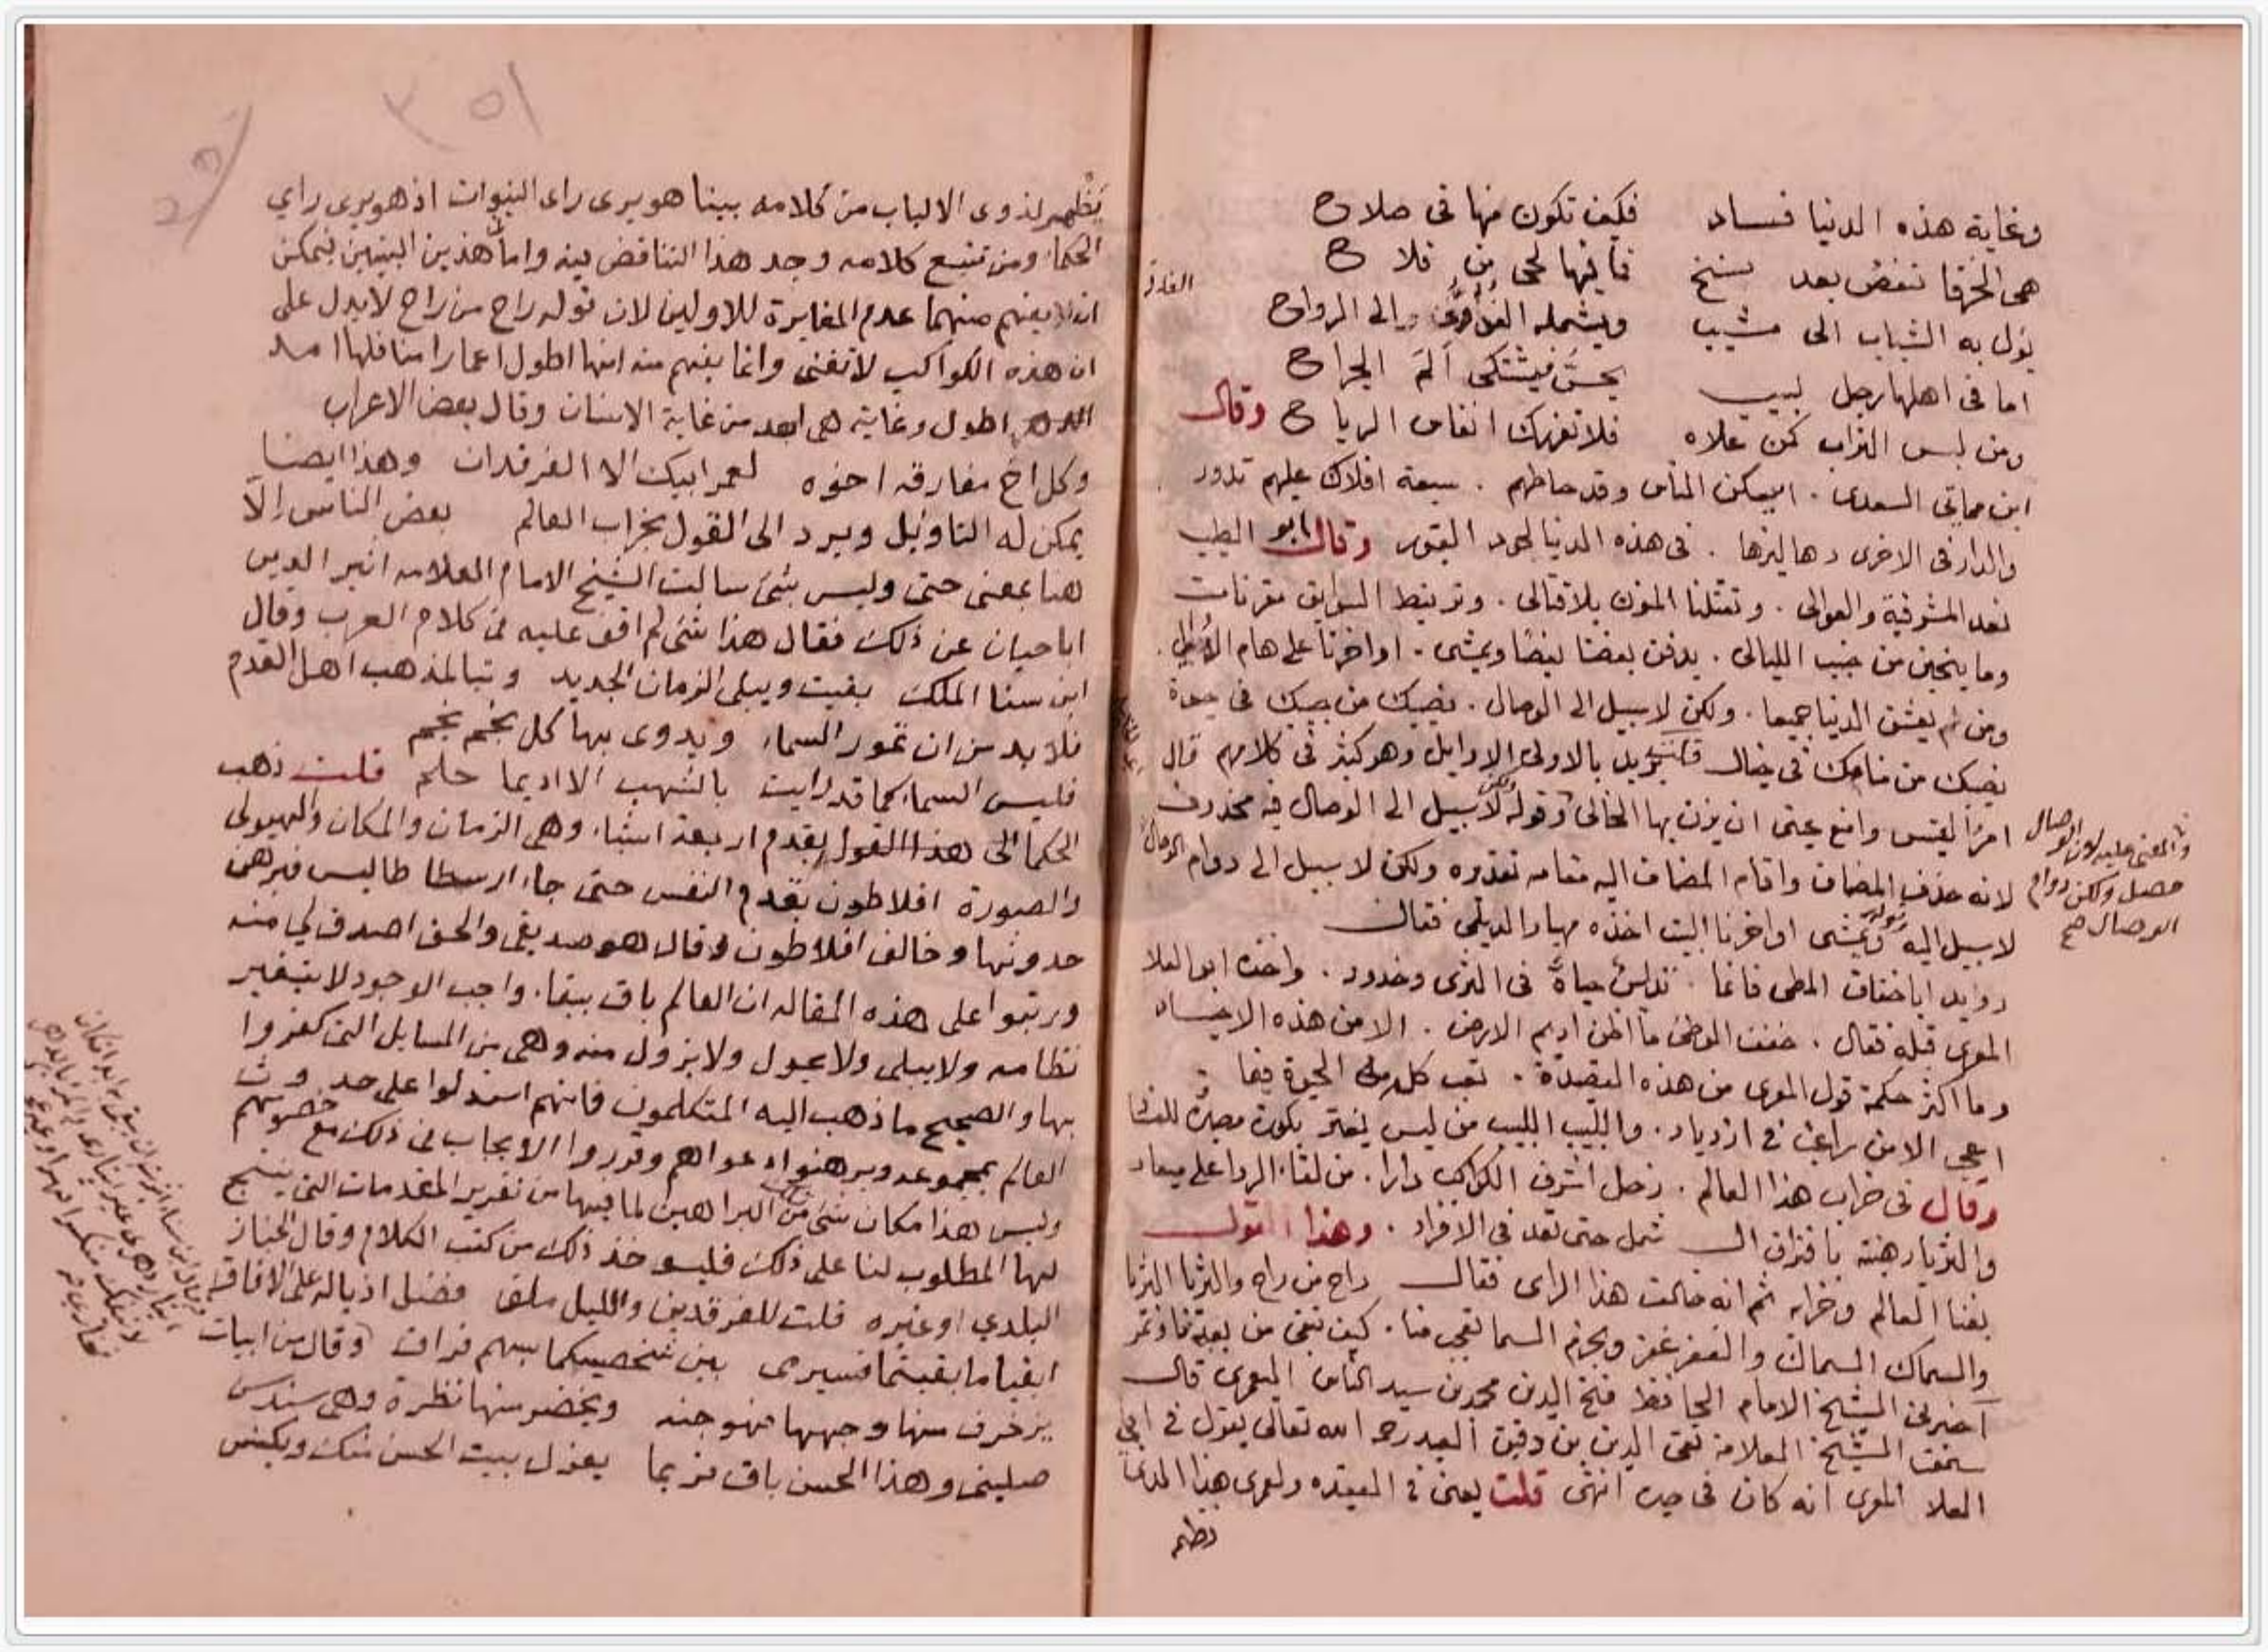 وغاية هذه الدنيا فساد فكيف تكون منها في صلاح
هي الخرقا تنقض بعد نسخ فما فيها لحي من فلاح
يؤل به الشباب الى مشيب ويشمله الغدو الى الرواح
اما في اهلها رجل لبيب يحس فيشتكي الم الجراح
ومن لبس التراب كمن علاه فلا تغررك انفاس الرياح وقال
ابن مماتي السعدى . ايمكن الناس وقد حاطهم . سبعة افلاك عليهم تدور
والدار في الاخرى دهاليزها . في هذه الدنيا لحود القبور وقال ابو الطيب
نعد المشرفية والعوالي . وتقتلنا المنون بلا قتال . ونرتبط السوابق مقربات
وما ينجين من خبب الليالي . يدفن بعضنا بعضا ويمشى . اواخرنا على هام الاوالي
ومن لم يعشق الدنيا جميعا . ولكن لا سبيل الى الوصال . نصيبك من حبيبك في حيوة
نصيبك من منامك في خيال قلت يريد بالاولى الاوايل وهو كثير في كلامهم قال
امرؤ القيس وامنع عرسي ان يزن بها الخالي وقوله ولكن لا سبيل الى الوصال فيه محذوف
لانه حذف المضاف واقام المضاف اليه مقامه تقديره ولكن لا سبيل الى دوام الوصال
والمعنى عليه لان الوصال
حصل ولكن دوام
الوصال صح
لا سبيل اليه وقوله ويمشى اواخرنا البيت اخذه مهيار الديلمي فقال
رويد اباخفاف المطي فانما تداس جباه في الثرى وخدود . واخذه ابو العلا
المعري قبله فقال . خفف الوطئ ما اظن اديم الارض . الا من هذه الاجساد
وما اكثر حكمة قول المعرى من هذه القصيدة . تعب كلها الحيوة فما
اعجب الا من راغب في ازدياد . واللبيب اللبيب من ليس يغتر بكون مصيره للفساد
وقال في خراب هذا العالم . زحل اشرف الكواكب دارا . من لقاء الردا على ميعاد
والثريا رهينة بافتراق الـ شمل حتى تعد في الافراد . وهذا القول
بفنا العالم وخرابه ثم انه خالف هذا الراى فقال راح من راح والثريا الثريا
والسماك السماك والغفر غفر ونجوم السما تعجب منا . كيف تبقى من بعدنا ونمر
اخبرني الشيخ الامام الحافظ فتح الدين محمد بن سيد الناس اليعمرى قال
سمعت الشيخ العلامة تقي الدين بن دقيق العيد رحمه الله تعالى يقول في ابي
العلا المعرى انه كان في حيره انتهى قلت يعني في العقيده ولعمرى هذا المدعا
يظهر لذوى الالباب من كلامه بينا هو يرى راى النبوات اذ هو يرى راي
الحكما ومن تتبع كلامه وجد هذا التناقض فيه واما هذين البيتين فيمكن
ان لا يفهم منهما عدم المغايرة للاولين لان قوله راح من راح لا يدل على
ان هذه الكواكب لا تفنى وانما يفهم منه انها اطول اعمارا منا فلها امد
اطول وغاية هي ابعد من غاية الانسان وقال بعض الاعراب
وكل اخ مفارقه اخوه لعمر ابيك الا الفرقدان وهذا ايضا
يمكن له التاويل ويرد الى القول بخراب العالم بعض الناس الا
هنا بمعنى حتى وليس بشئ سالت الشيخ الامام العلامه اثير الدين
ابا حيان عن ذلك فقال هذا شئ لم اقف عليه في كلام العرب وقال
ابن سنا الملك بقيت ويبلى الزمان الجديد وتبا لمذهب اهل القدم
فلا بد من ان تمور السماء ويدوى بها كل نجم نجم
فليس السماء كما قد رايت بالشهب الا اديما حلم قلت ذهب
الحكما الى هذا القول بقدم اربعة اشياء وهي الزمان والمكان والهيولى
والصورة افلاطون بقدم النفس حتى جاء ارسطا طاليس فبرهن
حدوثها وخالف افلاطون وقال هو صديقي والحق اصدق لي منه
ورتبوا على هذه المقاله ان العالم باق ببقاء واجب الوجود لا يتغير
نظامه ولا يبلى ولا يحول ولا يزول منه وهي من المسايل التي كفروا
بها والصحيح ما ذهب اليه المتكلمون فانهم استدلوا على حدوث
العالم بمجموعه وبرهنوا دعواهم وقرروا الايجاب في ذلك مع خصومهم
وليس هذا مكان شئ من تلك البراهين لما فيها من تقرير المقدمات التي ينتج
لها المطلوب لنا على ذلك فليوخذ ذلك من كتب الكلام وقال الخباز
البلدي او غيره قلت للفرقدين والليل ملق فضل اذياله على الافاق
ابقيا ما بقيتما فسيرمى بين شخصيكما بسهم فراق وقال من ابيات
يزخرف منها وجهها فهو جنه ويخضر منها نظرة وهي سندس
صليني وهذا الحسن باق فربما يعزل بيت الحسن منك ويكنس